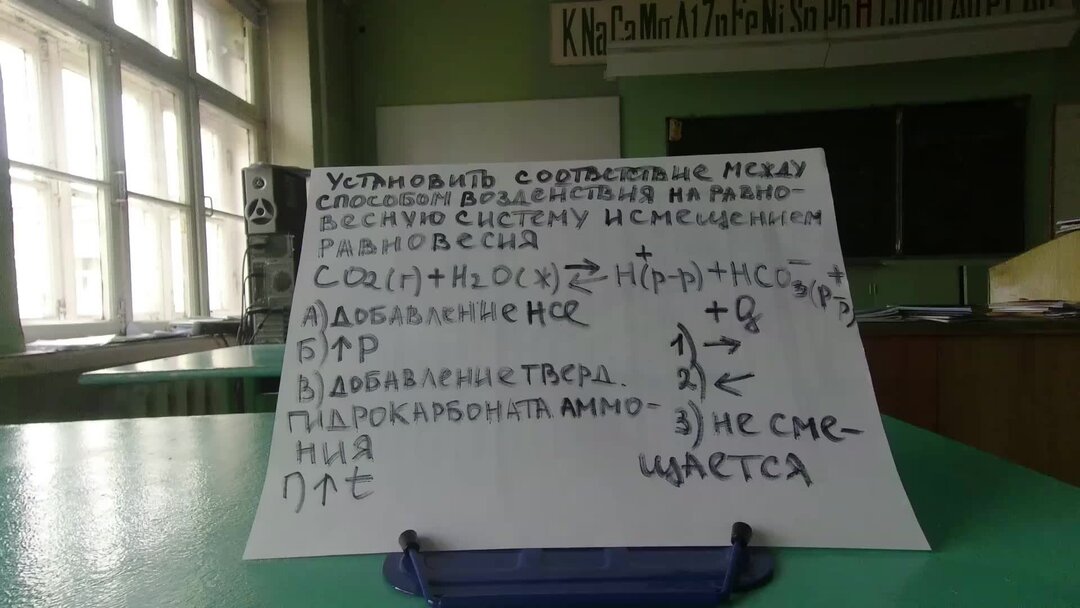 K Na Ca Mg Al Zn Fe Ni Sn Pb H
УСТАНОВИТЬ СООТВЕТСТВИЕ МЕЖДУ
СПОСОБОМ ВОЗДЕЙСТВИЯ НА РАВНО-
ВЕСНУЮ СИСТЕМУ И СМЕЩЕНИЕМ
РАВНОВЕСИЯ
CO2(г)+H2O(ж)⇄H⁺(р-р)+HCO3⁻(р-р)
+Q
А) ДОБАВЛЕНИЕ HCl
Б) ↑P
В) ДОБАВЛЕНИЕ ТВЕРД.
ГИДРОКАРБОНАТА АММО-
НИЯ
Г) ↑t
1) →
2) ←
3) НЕ СМЕ-
ЩАЕТСЯ